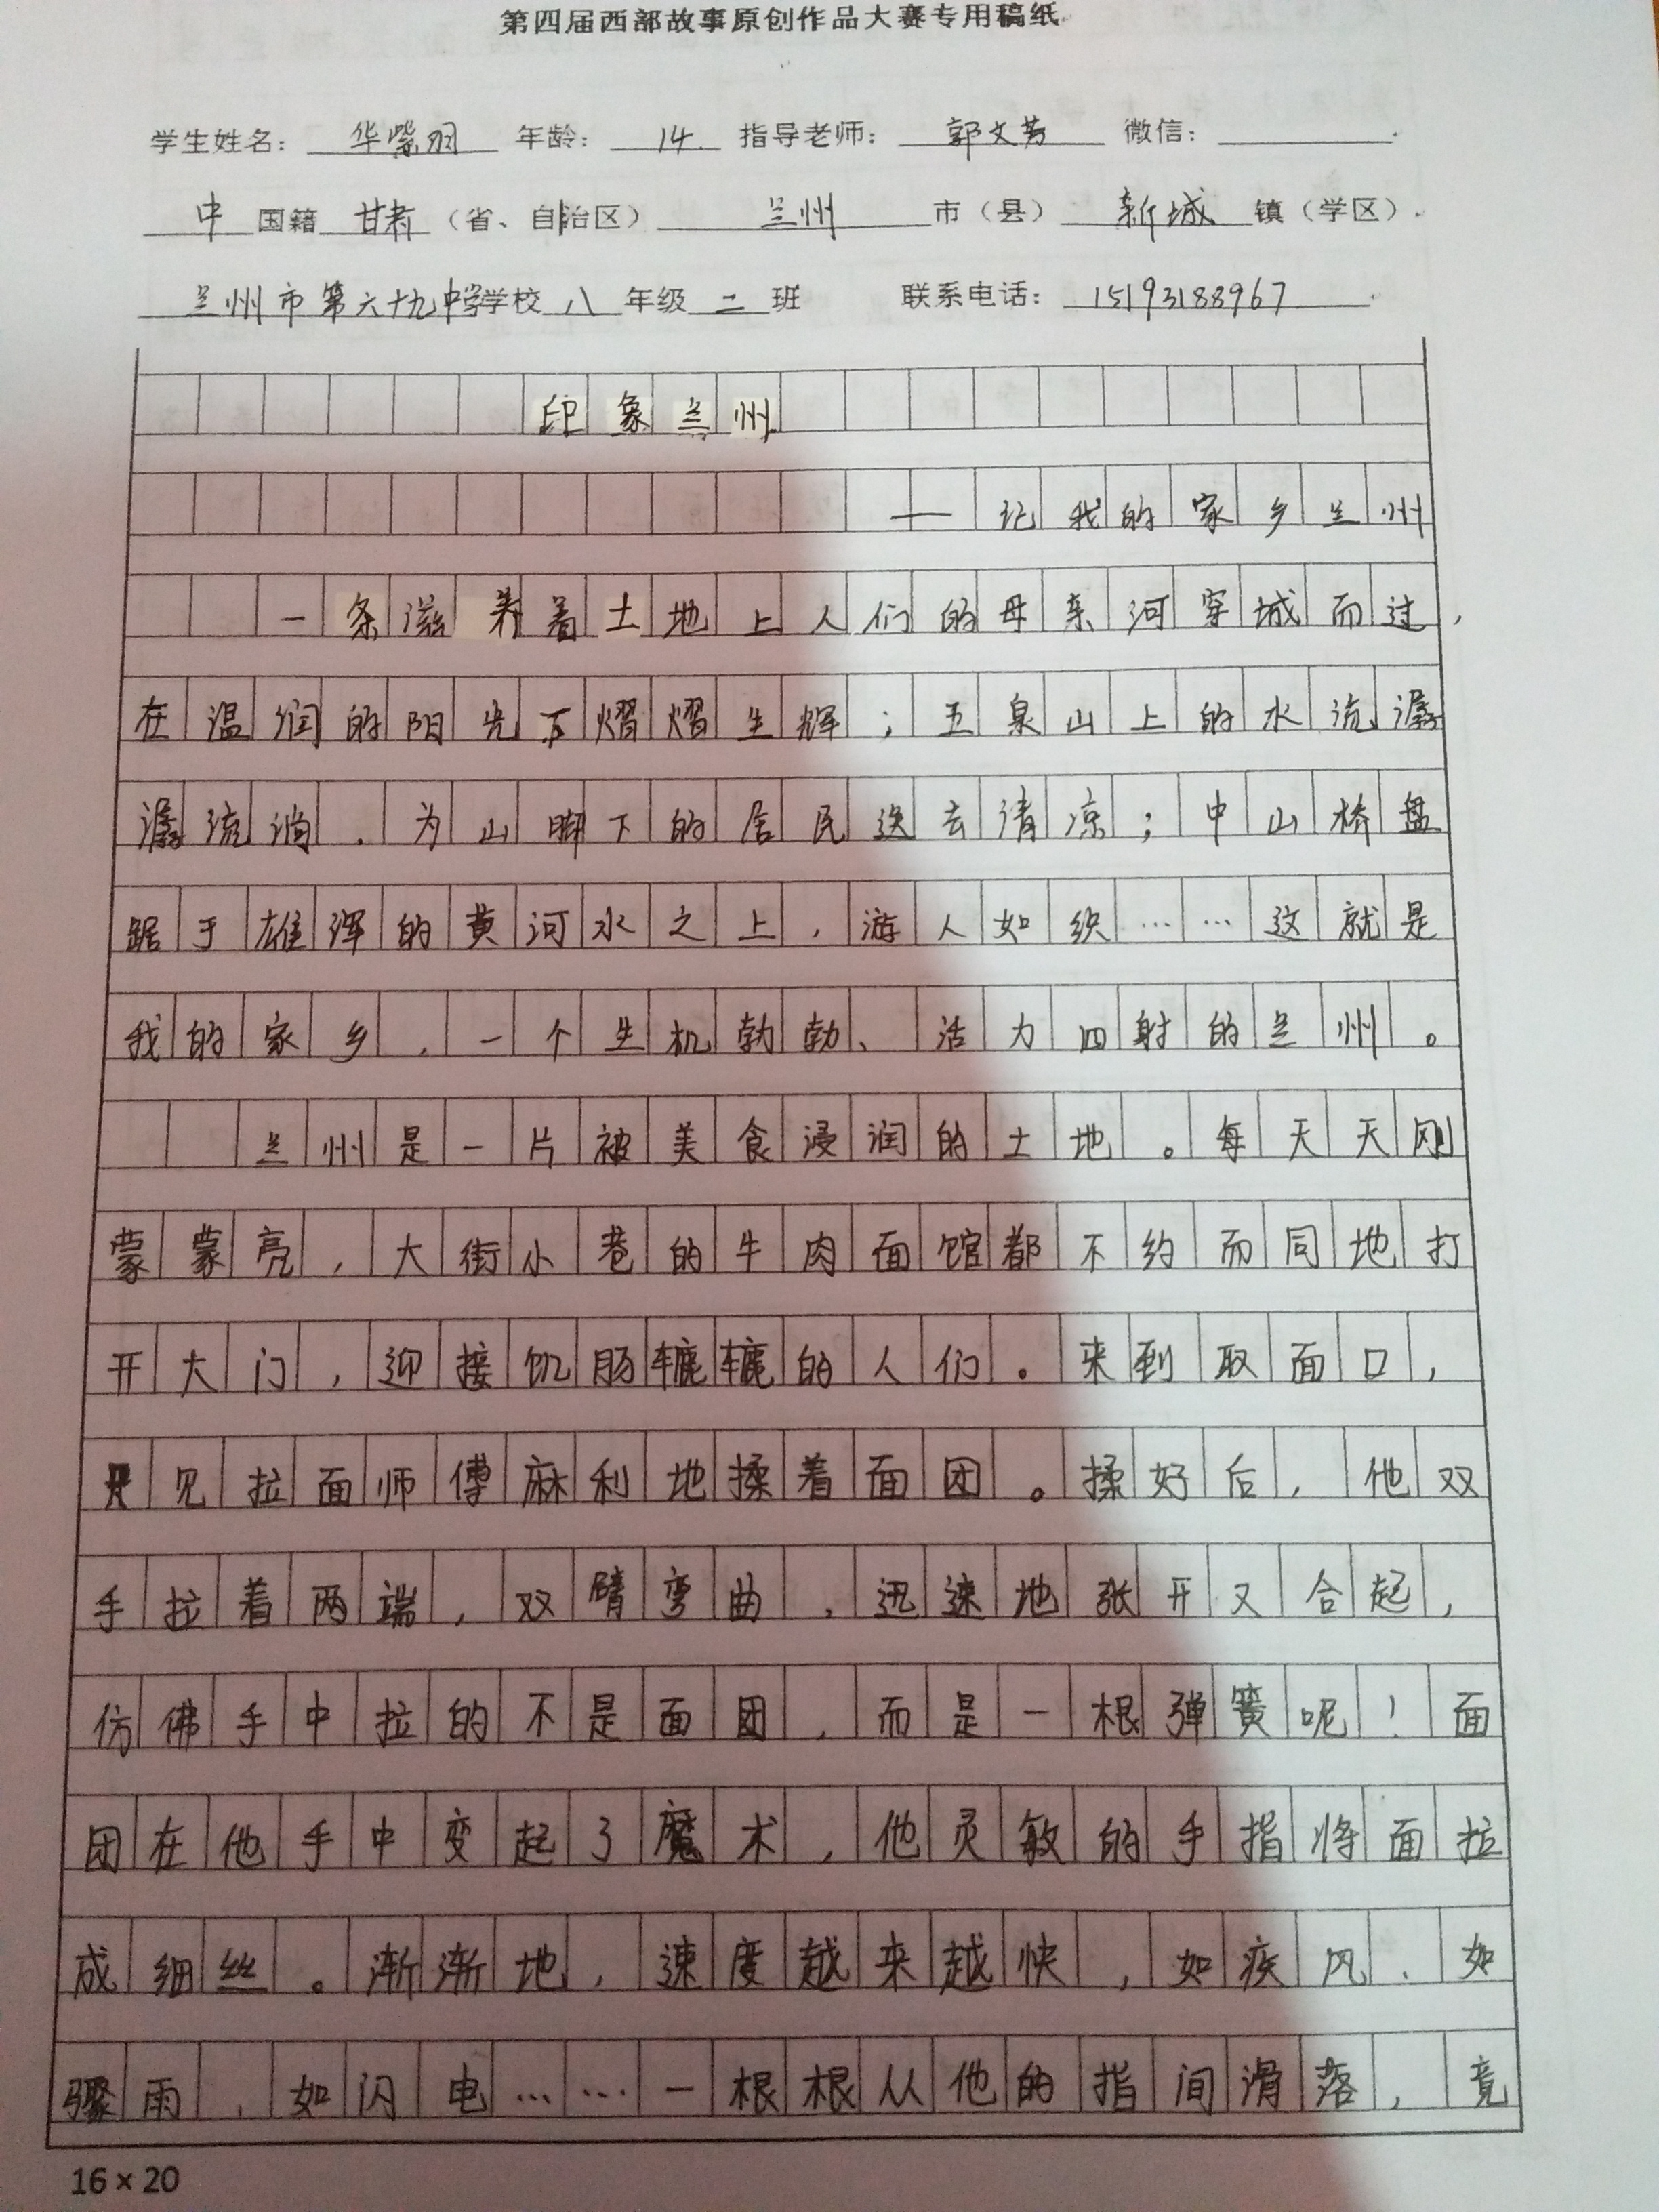 第四届西部故事原创作品大赛专用稿纸
学生姓名：华紫羽 年龄：14 指导老师：郭文芳 微信：
中国籍 甘肃（省、自治区） 兰州 市（县） 新城 镇（学区）
兰州市第六十九中学学校 八 年级 二 班 联系电话：15193188967
印象兰州
——记我的家乡兰州
一条滋养着土地上人们的母亲河穿城而过，
在温润的阳光下熠熠生辉；五泉山上的水流潺
潺流淌，为山脚下的居民送去清凉；中山桥盘
踞于雄浑的黄河水之上，游人如织……这就是
我的家乡，一个生机勃勃、活力四射的兰州。
兰州是一片被美食浸润的土地。每天天刚
蒙蒙亮，大街小巷的牛肉面馆都不约而同地打
开大门，迎接饥肠辘辘的人们。来到取面口，
只见拉面师傅麻利地揉着面团。揉好后，他双
手拉着两端，双臂弯曲，迅速地张开又合起，
仿佛手中拉的不是面团，而是一根弹簧呢！面
团在他手中变起了魔术，他灵敏的手指将面拉
成细丝。渐渐地，速度越来越快，如疾风、如
骤雨、如闪电……一根根从他的指间滑落，竟
16×20